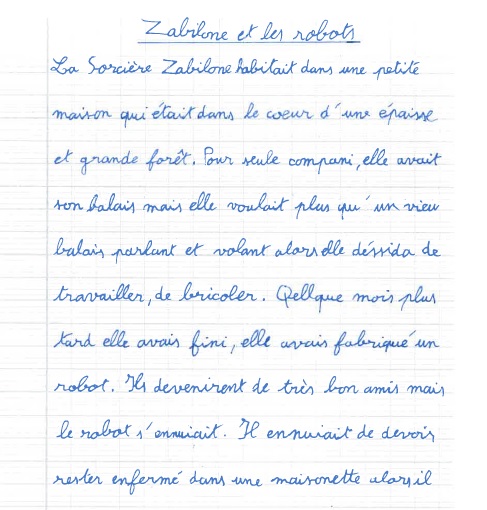 Zabilone et les robots
La Sorcière Zabilone habitait dans une petite
maison qui était dans le coeur d'une épaisse
et grande forêt. Pour seule compani, elle avait
son balais mais elle voulait plus qu'un vieu
balais parlant et volant alors elle déssida de
travailler, de bricoler. Qellque mois plus
tard elle avais fini, elle avais fabriqué un
robot. Ils devenirent de très bon amis mais
le robot s'ennuiait. Il ennuiait de devoir
rester enfermé dans une maisonette alors il